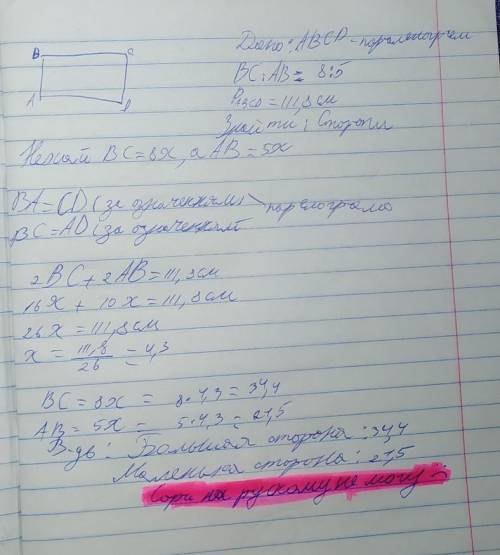 B C
A D
Дано: ABCD - паралелограм
BC:AB = 8:5
P ABCD = 111,8см
Знайти: Сторони
Нехай BC=8x, а AB=5x
BA=CD (за означенням) паралограма
BC=AD (за означенням
2BC+2AB=111,8см
16x + 10x = 111,8см
26x = 111,8см
x = 111,8/26 = 4,3
BC = 8x = 8·4,3 = 34,4
AB = 5x = 5·4,3 = 21,5
В-дь: Большая сторона: 34,4
Маленькая сторона: 21,5
Сори на рускому не могу